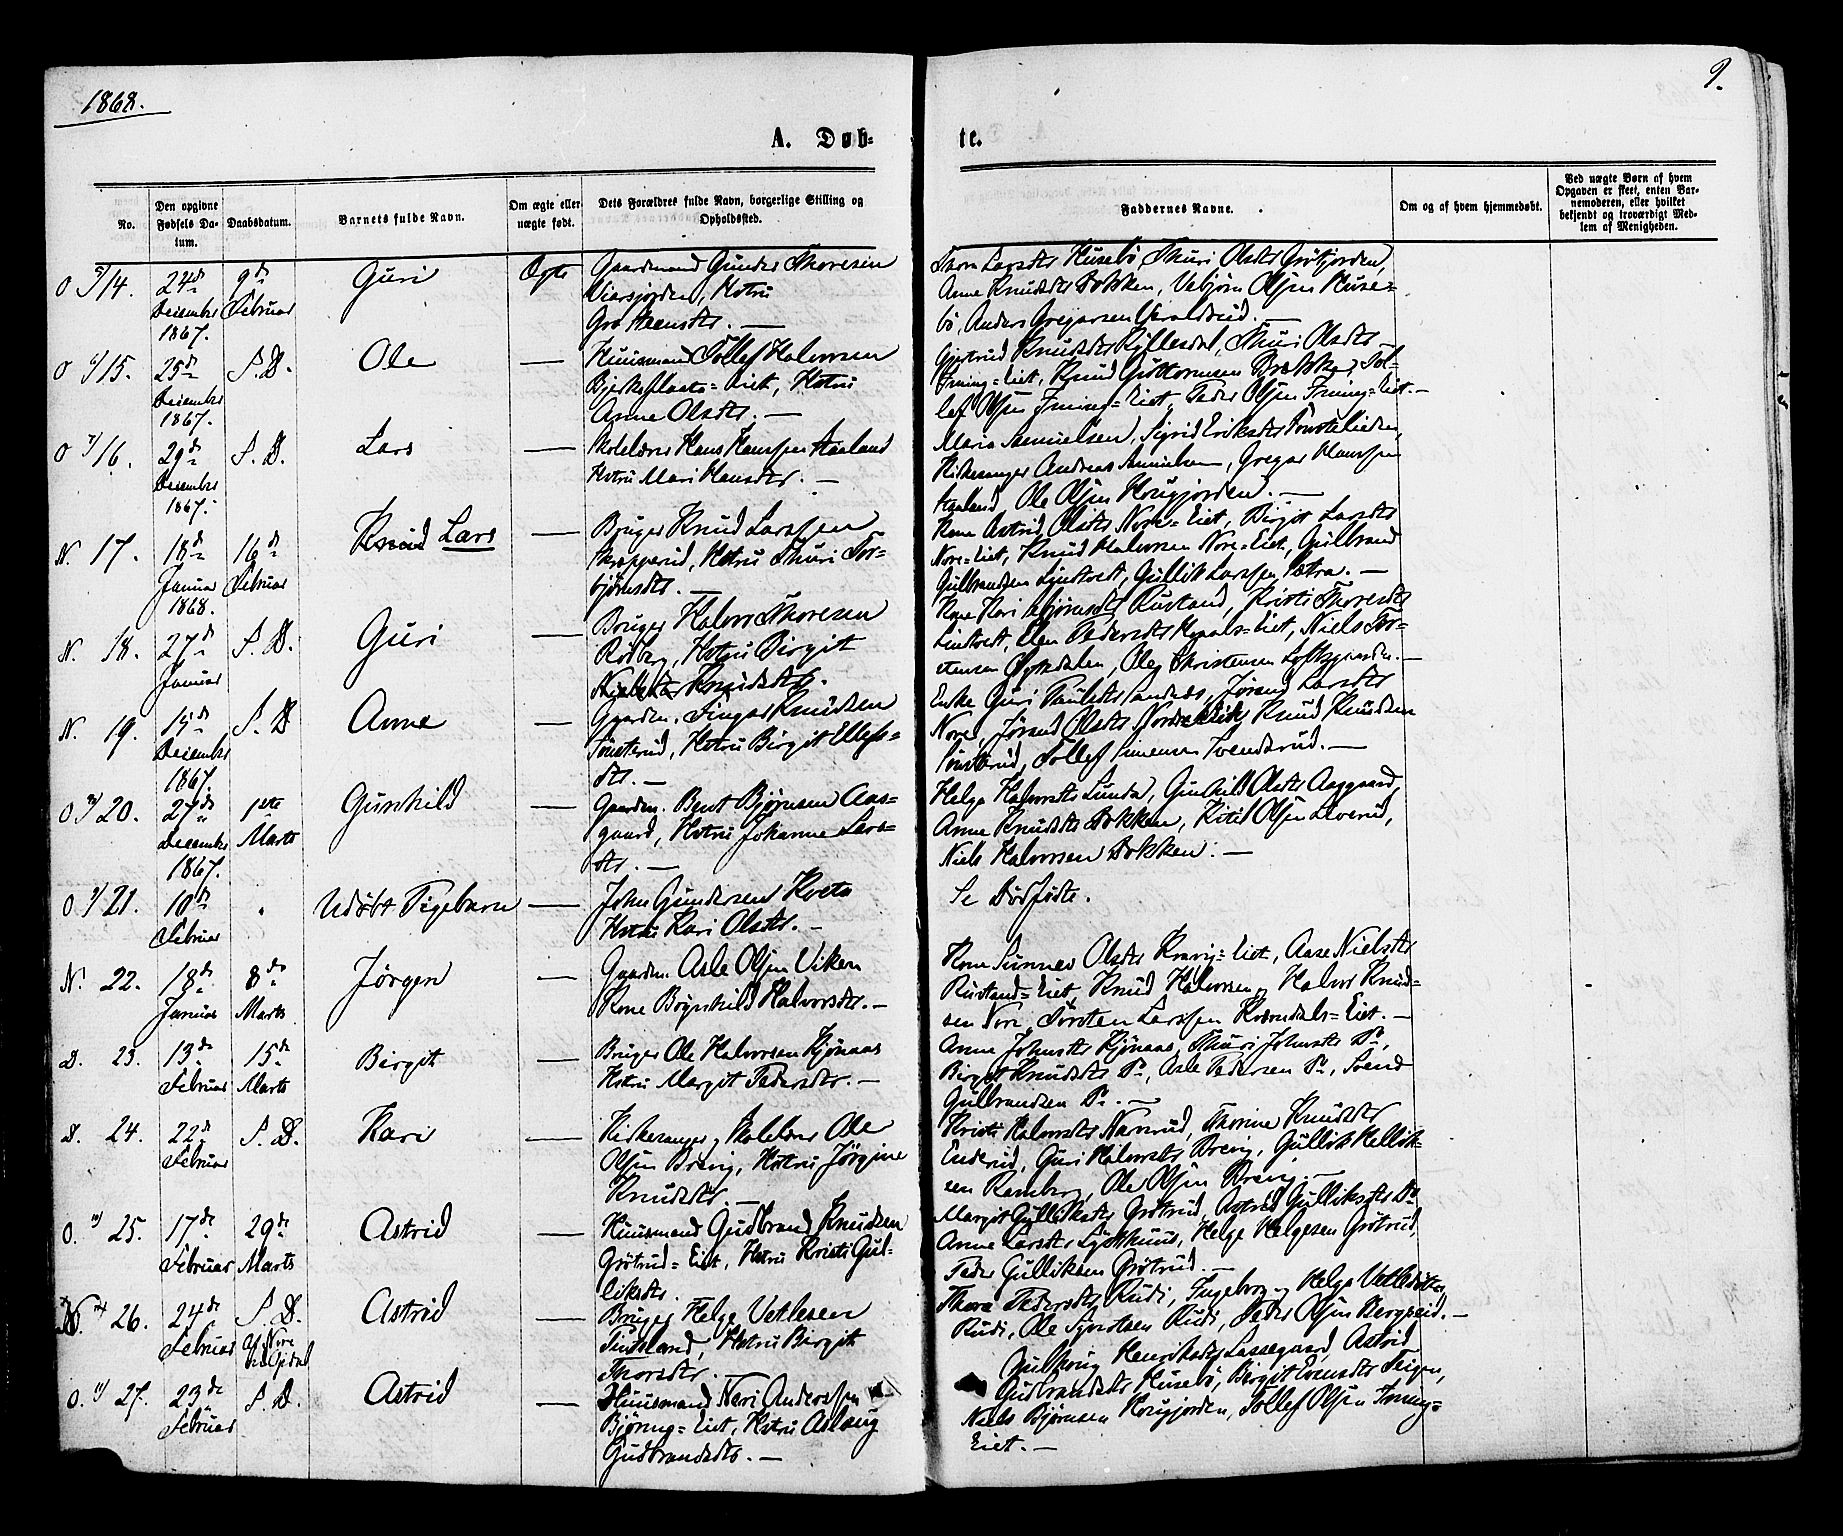 1868.
9.
A. Døb-
te.
No.
Den opgivne Fødsels Da-
tum.
Daabsdatum.
Barnets fulde Navn.
Om ægte eller
uægte født.
Dets Forældres fulde Navn, borgerlige Stilling og
Opholdssted.
Faddernes Navne.
Om og af hvem hjemmedøbt.
Ved uægte Børn af hvem
Opgaven er skeet, enten Bar-
nemoderen, eller hvilket
bekjendt og troværdigt Med-
lem af Menigheden.
O 5/14. 24de Decembr 1867. 9de Februar Guri Ægte
Gaardmand Gunder Thoresen
Viersjorden, Hstru
Gro Steensdtr. —
Thore Larsdtr Husebö, Thuri Olsdtr Grötjorden,
Anne Knudsdtr Dokken, Vebjörn Olsen Huse-
bö, Anders Gregarsen Geraldrud. —
O 6/15. 25de Decembr 1867. S.D. Ole —
Huusmand Tollef Halvorsen
Bjerkeflaata-Eiet, Hstru
Anne Olsdtr. —
Gjertrud Knudsdtr Kyllesdal, Thuri Olsdtr
Frning-Eiet, Knud Guttormsen Brække, Tol-
lef Olsen Frning-Eiet, Peder Olsen Frning-Eiet. —
O 7/16. 29de Decembr 1867. S.D. Lars —
Skolelærer Hans Hansen Aaland
Hstru Mari Hansdtr. —
Maria Samuelsen, Sigrid Eriksdtr Tovstelieden,
Kirkesanger Andreas Samuelsen, Gregar Hanssen
Aaland Ole Olsen Hougjorden. —
N. 17. 18de Januar 1868. 16de Februar Knud Lars —
Bruger Knud Larssen
Skropperud, Hstru Thuri Tor-
björnsdtr. —
Kone Astrid Olsdtr Nore-Eiet, Birgit Larsdtr
Nore-Eiet, Knud Halvorsen Nore-Eiet, Gulbrand
Gulbrandsen Liverudt, Gullik Larssen Sætra. —
N. 18. 27de Januar S.D. Guri —
Bruger Halvor Thoresen
Rödberg, Hstru Birgit
Knudsdtr.
Kone Kari Björnsdtr Rustand, Kristi Thoresdtr
Lindtvedt, Elen Pedersdtr Eiet, Niels Tor-
stensen Öygsdalen, Ole Christensen Loftsgaarden. —
N. 19. 15de Decembr 1867. S.D. Anne —
Gaardm. Fingar Knudsen
Tönsterud, Hstru Birgit Ellefs-
dtr. —
Enke Guri Paulsdtr Sandnes, Jörand Larsdtr
Nore, Jörand Olsdtr Knud Knudsen
Tönsterud, Tollef Simensen Svendsrud. —
O 20. 27de Decembr 1867. 1ste Marts Gunhild —
Gaardm. Bent Bjørnsen Aas-
gaard, Hstru Johanne Lars-
dtr. —
Helga Halvorsdtr Lunde, Gunhild Olsdtr Aasgaard,
Anne Knudsdtr Dokken, Kitil Olsen Liverud,
Niels Halvorsen Dokken. —
O 9/21. 10de Februar . Udöbt Pigebarn —
John Gundersen Kveto
Hstru Kari Olsdtr. —
Se Dödfödte.
N. 22. 18de Januar 8de Marts Jørgen —
Gaardm. Asle Olsen Viken
Kone Bögnhild Halvorsdtr. —
Kone Sunnev Olsdtr Kravig-Eiet, Aase Nielsdtr
Rustand-Eiet, Knud Halvorsen, Halvor Knud-
sen Nore, Torsten Larssen Kverndals-Eiet. —
D. 23. 13de Februar 15de Marts Birgit —
Bruger Ole Halvorsen Kjönaas
Hstru Margit Pedersdtr. —
Anne Johnsdtr Kjönaas, Thuri Johnsdtr Do,
Birgit Knudsdtr Do, Asle Pedersen Do, Svend
Gulbrandsen Do. —
D. 24. 22de Februar S.D. Kari —
Kirkesanger, Skolelærer Ole
Olsen Brevig, Hstru Jörgine
Knudsdtr. —
Kristi Halvorsdtr Narverud, Thorine Knudsdtr
Enderud, Guri Halvorsdtr Brevig, Gullik Kittil-
sen Ramberg, Ole Olsen Brevig. —
O. 10/25. 17de Februar 29de Marts Astrid —
Huusmand Gudbrand Knudsen
Grötrud-Eiet, Hstru Kristi Gul-
liksdtr.
Margit Gulliksdtr Grötrud, Astrid Gulliksdtr Do
Anne Larsdtr Ljöterud, Helge Helgesen Grötrud,
Peder Gulliksen Grötrud. —
N. 26. 24de Februar S.D. Astrid —
Bruger Helge Vetlesen
Tinsland, Hstru Birgit
Thorsdtr. —
Thora Pedersdtr Rudi, Ingeborg, Helga Vetlesdtr
Rudi, Ole Syvertsen Rudi, Peder Olsen Bergseid. —
O. 11/27. 23de Februar S.D. Astrid —
Huusmand Neri Anderssen
Björing-Eiet, Hstru Aslaug
Gudbrandsdtr. —
Gulborg Henriksdtr Lassegaard, Astrid
Gudbrandsdtr Husebö, Birgit Evensdtr Teigen,
Niels Bjørnsen Hougjorden, Tollef Olsen Frning-
Eiet. —